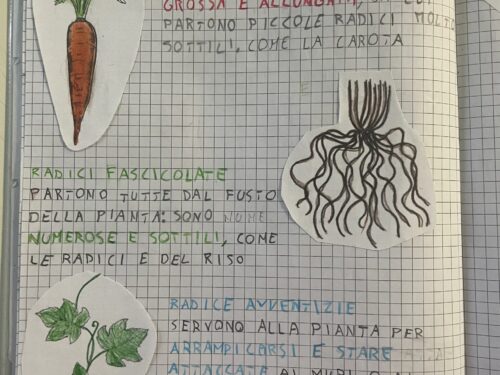 GROSSA E ALLUNGATA, DA CUI
PARTONO PICCOLE RADICI MOLTO
SOTTILI, COME LA CAROTA
RADICI FASCICOLATE
PARTONO TUTTE DAL FUSTO
DELLA PIANTA: SONO NUME
NUMEROSE E SOTTILI, COME
LE RADICI E DEL RISO
RADICE AVVENTIZIE
SERVONO ALLA PIANTA PER
ARRAMPICARSI E STARE
ATTACCATE AI MURI O AL